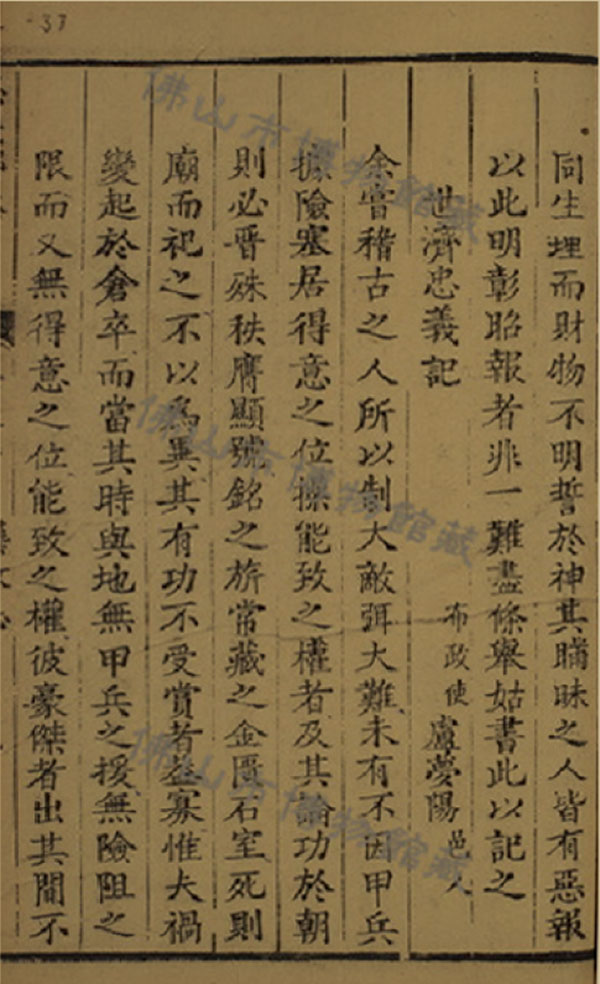 37
同生埋而財物不明誓於神其瞞昧之人皆有惡報
以此明彰昭報者非一難盡條舉姑書此以記之
世濟忠義記 布政使 盧夢陽 邑人
余嘗稽古之人所以制大敵弭大難未有不因甲兵
據險塞居得意之位操能致之權者及其論功於朝
則必晉殊秩膺顯號銘之旂常藏之金匱石室死則
廟而祀之不以為異其有功不受賞者益寡惟夫禍
變起於倉卒而當其時與地無甲兵之援無險阻之
限而又無得意之位能致之權彼豪傑者出其間不
佛山市博物館藏
佛山市博物館藏
佛山市博物館藏